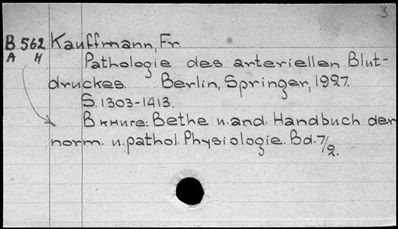 3
B 562 Kauffmann, Fr.
A H
Pathologie des arteriellen Blut-
druckes. Berlin, Springer, 1927.
S. 1303-1413.
В книге: Bethe u. and. Handbuch der
norm. u. pathol. Physiologie. Bd. 7/2.